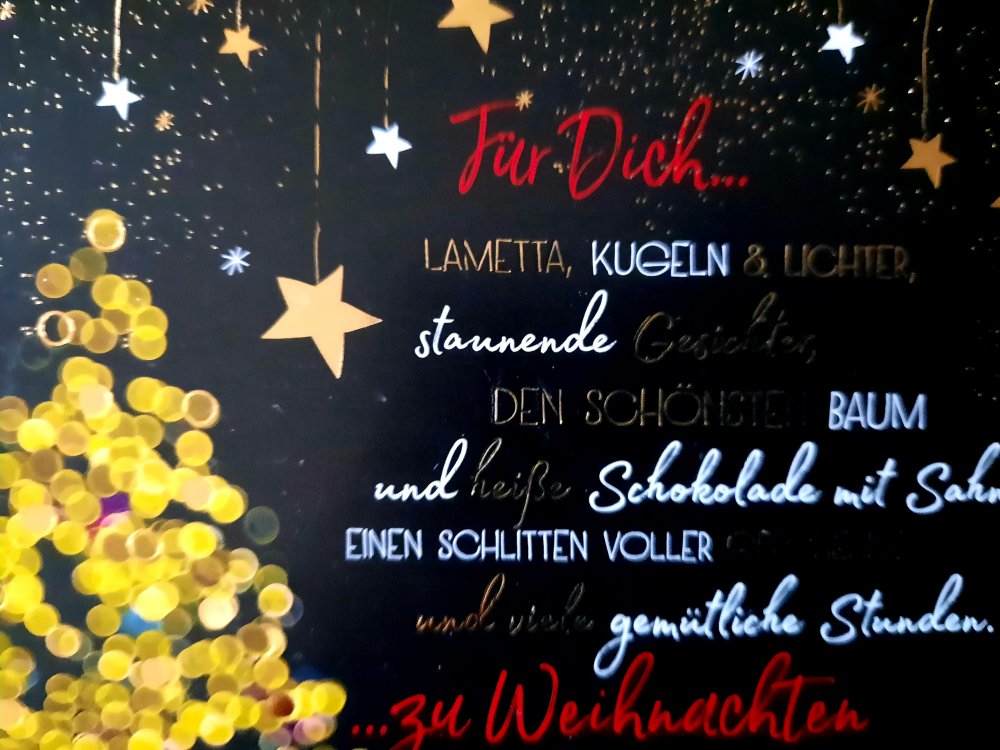 Für Dich...
LAMETTA, KUGELN & LICHTER,
staunende Gesichter,
DEN SCHÖNSTEN BAUM
und heiße Schokolade mit Sahn
EINEN SCHLITTEN VOLLER
und viele gemütliche Stunden.
...zu Weihnachten